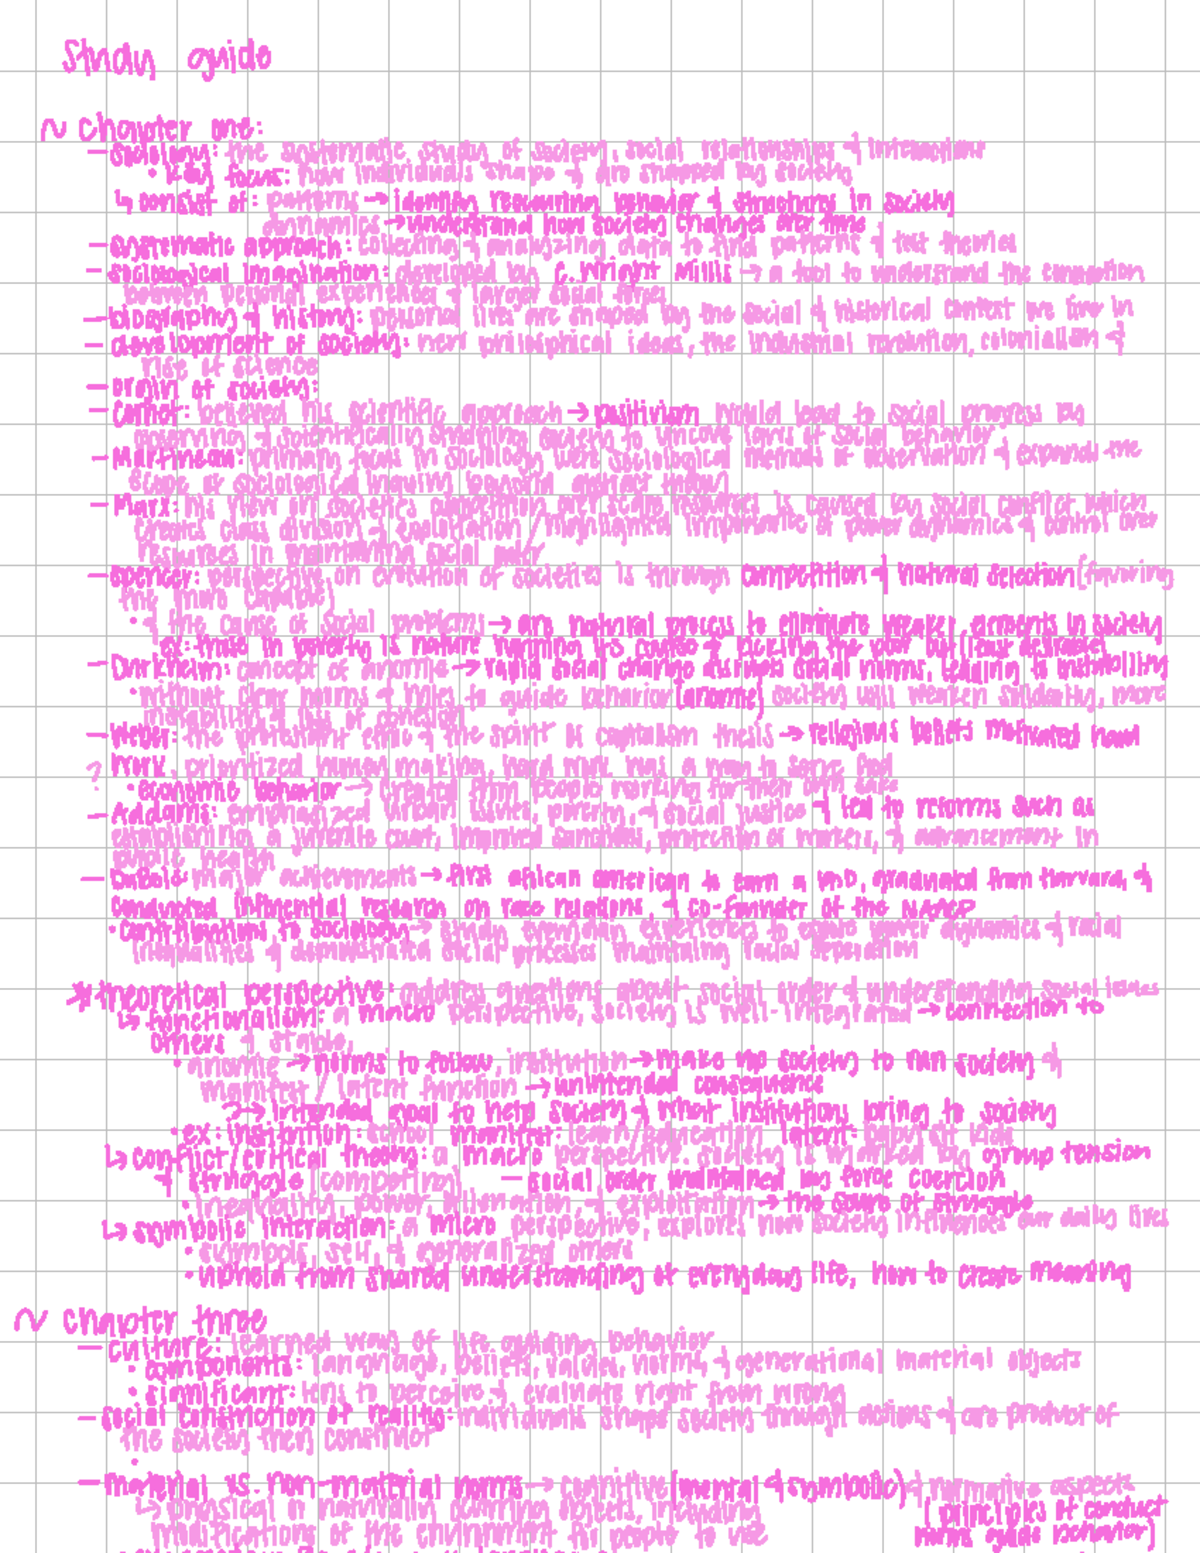 Study guide
~ chapter one:
– sociology: the systematic study of society, social relationships & interactions
• key focus: how individuals shape & are shaped by society
↳ consist of: patterns → identify reoccurring behavior & structures in society
dynamics → understand how society changes over time
– systematic approach: collecting & analyzing data to find patterns & test theories
– sociological imagination: developed by C. Wright Mills → a tool to understand the connection
between personal experiences & larger social forces
– biography & history: personal lives are shaped by the social & historical context we live in
– development of society: new philosphical ideas, the industrial revolution, colonialism &
rise of science
– origin of society:
– Comte: believed his scientific approach → positivism would lead to social progress by
observing & scientifically studying society to uncove laws of social behavior
– Martineau: primary focus in sociology were sociological methods of observation & expands the
scope of sociological inquiry beyond abstract theory
– Marx: his view on societies competition over scare resources is caused by social conflict which
creates class division & exploitation / highlighted importance of power dynamics & control over
resources in maintaining social order
– Spencer: perspective on evolution of societies is through competition & natural selection (favoring
the more capable)
• & the cause of social problems → are natural process to eliminate weaker elements in society
ex: those in poverty is nature running its course & picking the poor out (less desirable)
– Durkheim: concept of anomie → rapid social change disrupts social norms, leading to instability
• without clear norms & rules to guide behavior (anomie) society will weaken solidarity, more
instability & loss of cohesion
– Weber: the protestant ethic & the spirit of capitalism thesis → religious beliefs motivated hard
? work, prioritized money making, hard work was a way to serve God
• economic behavior → created from people working for their own sake
– Addams: emphasized urban issues, poverty, & social justice & led to reforms such as
establishing a juvenile court, improved sanitation, protection of workers, & advancement in
public health
– DuBois: major achievements → first african american to earn a PhD, graduated from Harvard, &
conducted influential research on race relations & co-founder of the NAACP
• contributions to sociology → study everyday experiences to expose power dynamics & racial
inequalities & demonstrated social processes maintaining racial separation
* theoretical perspective: address questions about social order & understanding social issues
↳ functionalism: a macro perspective, society is well-integrated → connection to
others & stable,
• anomie → norms to follow, institution → make up society to run society &
manifest / latent function → unintended consequence
?→ intended goal to help society & what institutions bring to society
• ex: institution: school manifest: learn/education latent: babysit kids
↳ conflict/critical theory: a macro perspective. society is widened by group tension
& struggle (competing) – social order maintained by force coercion
• inequality, power, alienation, & exploitation → the source of struggle
↳ symbolic interaction: a micro perspective, explores how society influences our daily lives
• symbols, self, & generalized others
• upheld from shared understanding of everyday life, how to create meaning
~ chapter three
– culture: learned ways of life guiding behavior
• components: language, beliefs, values, norms, & generational material objects
• significant: lens to perceive & evaluate right from wrong
– social construction of reality: individuals shape society through actions & are product of
the society they construct
•
– material vs. non-material norms → cognitive (mental & symbolic) & normative aspects
↳ physical or naturally occurring objects, including (principles of conduct
modifications of the environment for people to use norms guide behavior)